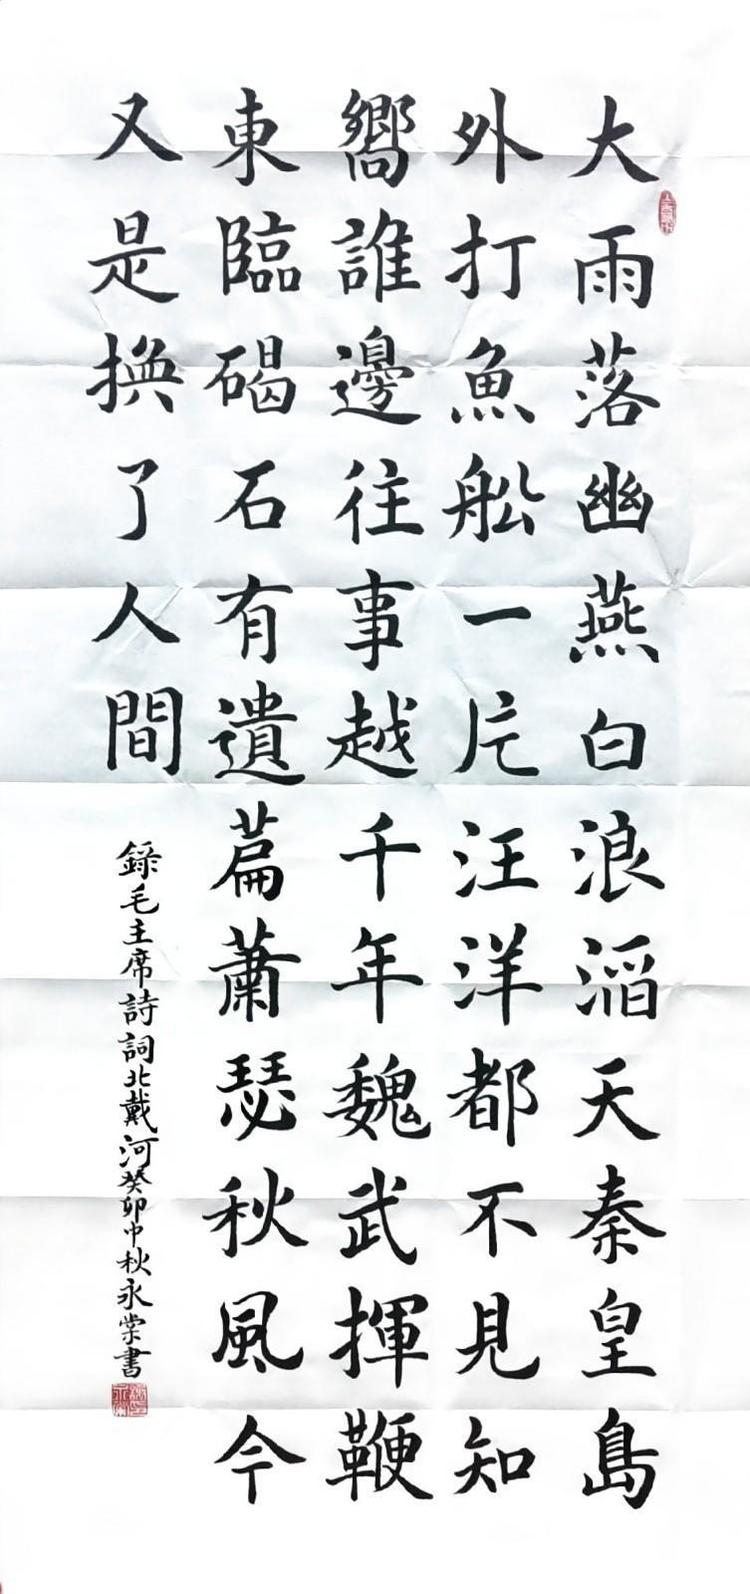 大雨落幽燕白浪滔天秦皇島
外打魚船一片汪洋都不見知
嚮誰邊往事越千年魏武揮鞭
東臨碣石有遺篇蕭瑟秋風今
又是換了人間
錄毛主席詩詞北戴河癸卯中秋永棠書